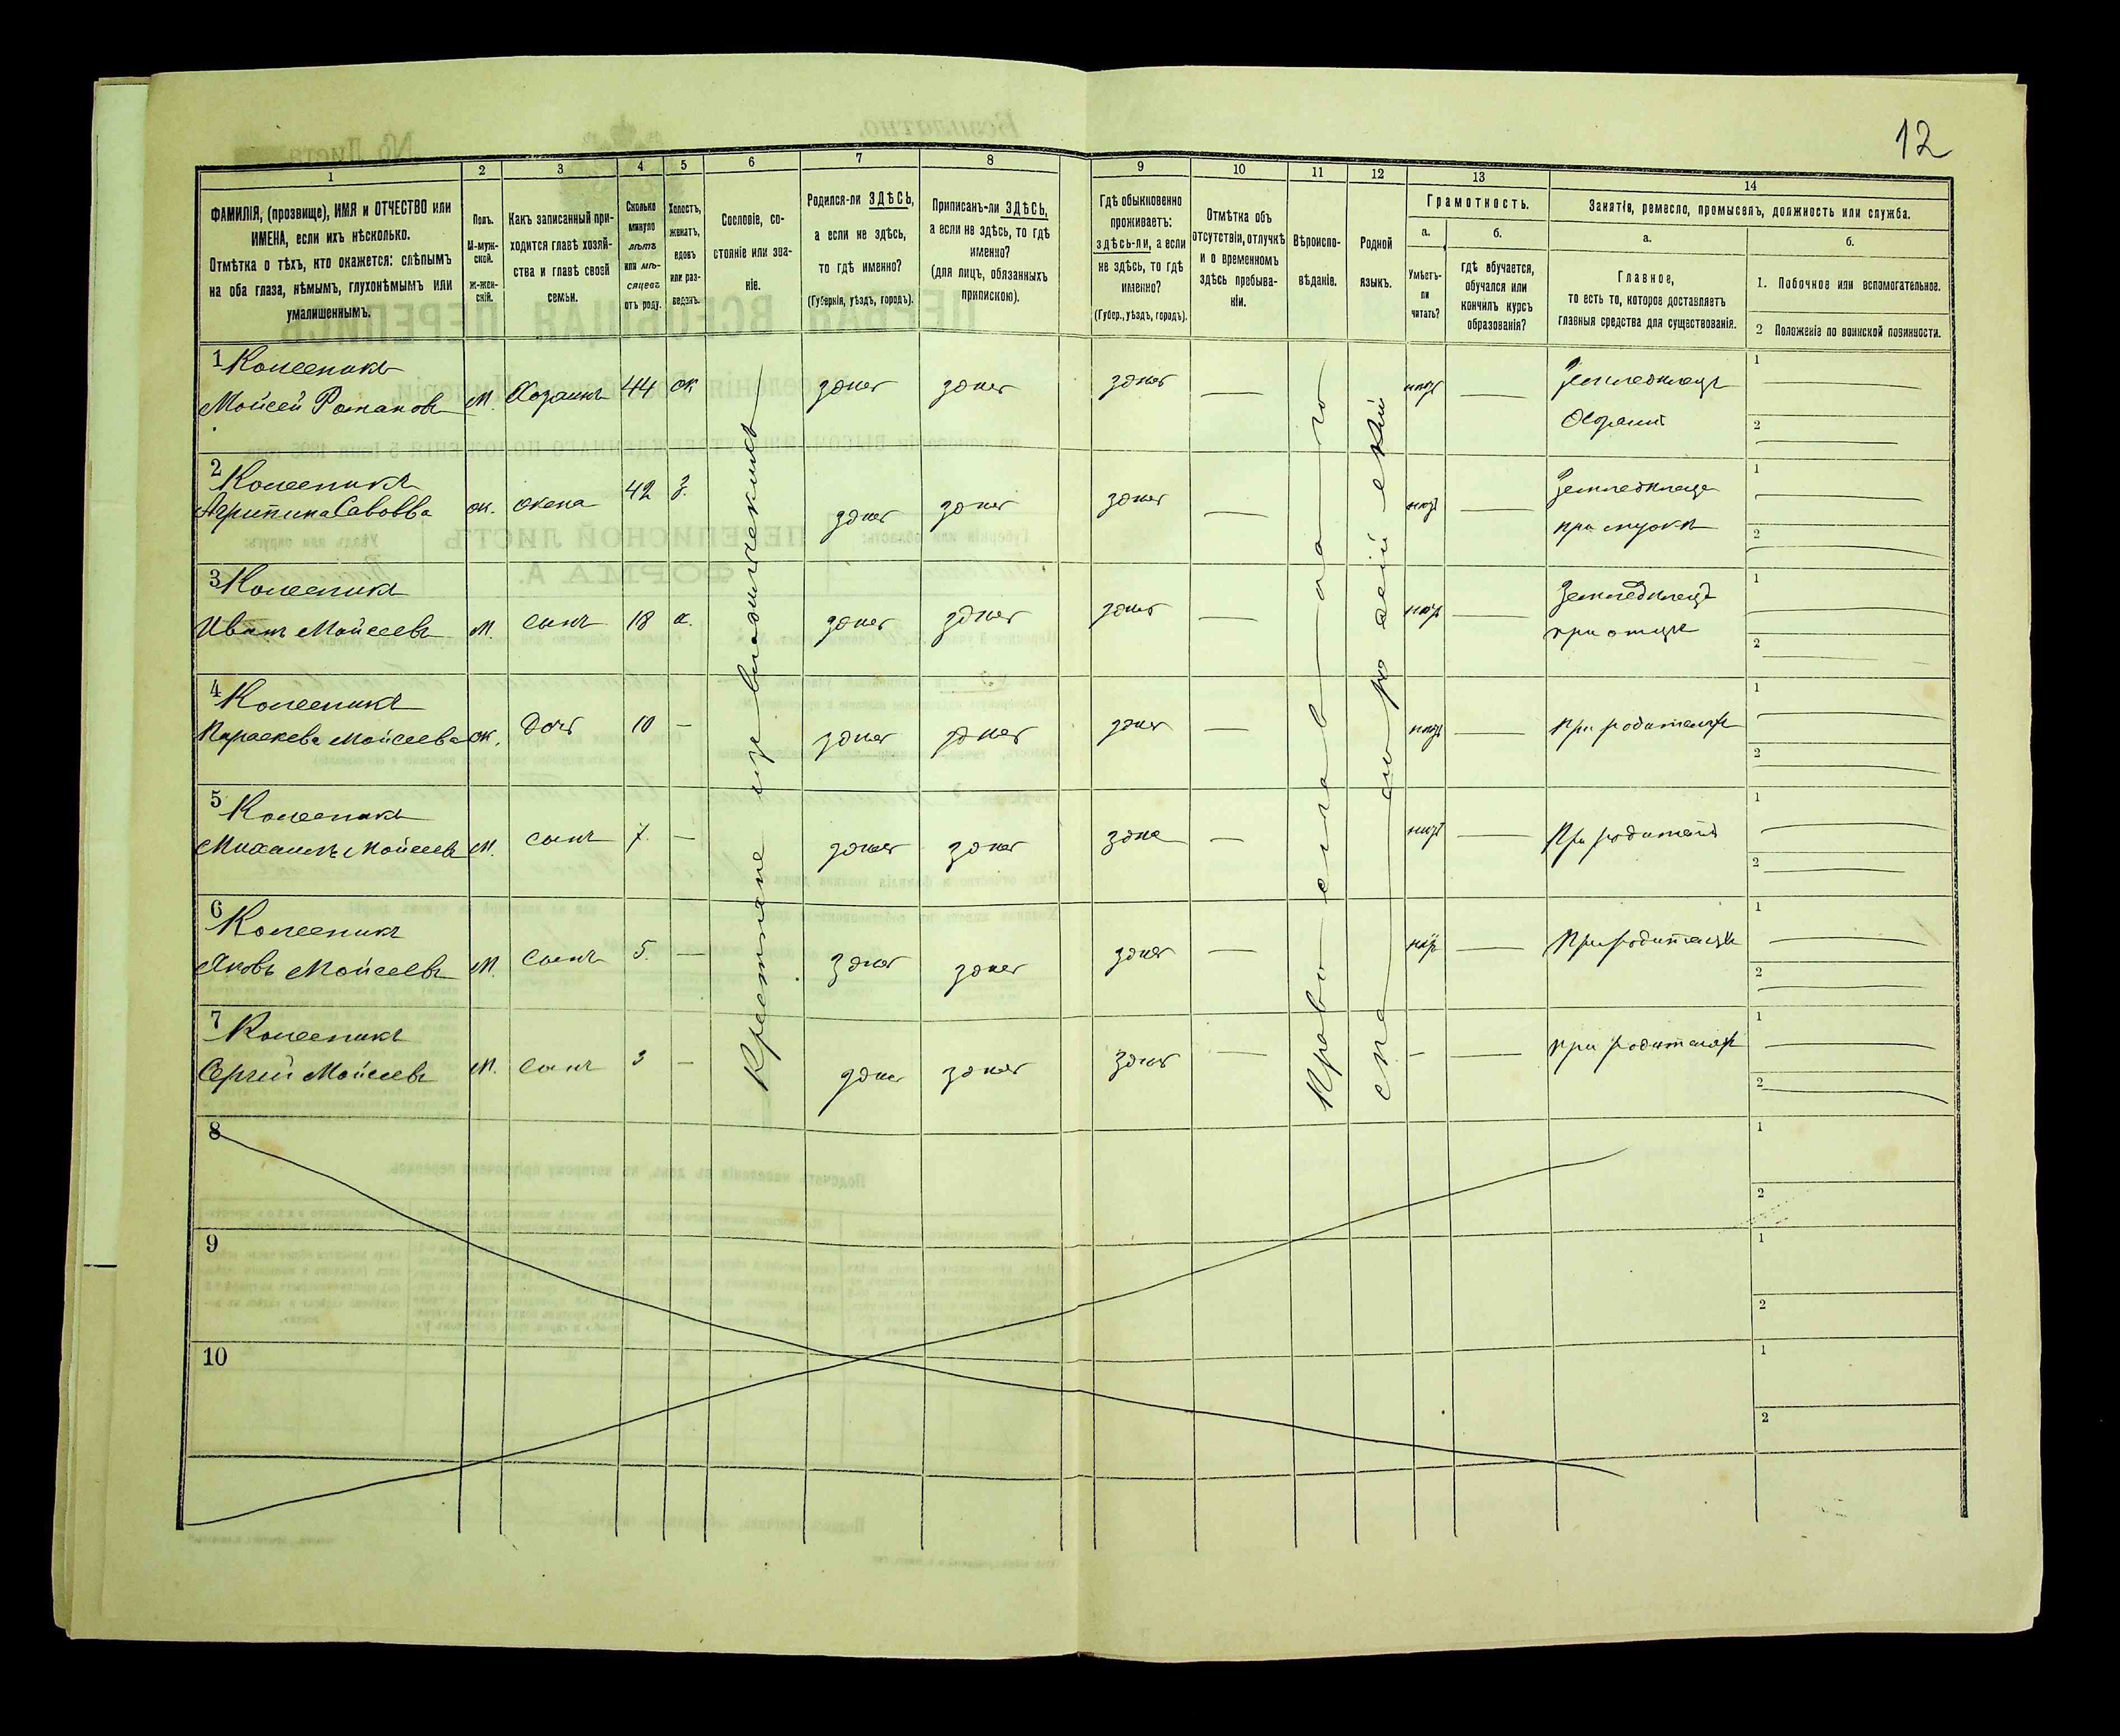 12
1
2
3
4
5
6
7
8
9
10
11
12
13
14
ФАМИЛІЯ, (прозвище), ИМЯ и ОТЧЕСТВО или
ИМЕНА, если ихъ нѣсколько.
Отмѣтка о тѣхъ, кто окажется: слѣпымъ
на оба глаза, нѣмымъ, глухонѣмымъ или
умалишеннымъ.
Полъ.
М-муж-
ской.
Ж-жен-
скій.
Какъ записанный при-
ходится главѣ хозяй-
ства и главѣ своей
семьи.
Сколько
минуло
лѣтъ
или мѣ-
сяцевъ
отъ роду.
Холостъ,
женатъ,
вдовъ
или раз-
веденъ.
Сословіе, со-
стояніе или зва-
ніе.
Родился-ли ЗДѢСЬ,
а если не здѣсь,
то гдѣ именно?
(Губернія, уѣздъ, городъ).
Приписанъ-ли ЗДѢСЬ,
а если не здѣсь, то гдѣ
именно?
(для лицъ, обязанныхъ
припискою).
Гдѣ обыкновенно
проживаетъ:
здѣсь-ли, а если
не здѣсь, то гдѣ
именно?
(Губер., уѣздъ, городъ).
Отмѣтка объ
отсутствіи, отлучкѣ
и о временномъ
здѣсь пребыва-
ніи.
Вѣроиспо-
вѣданіе.
Родной
языкъ.
Грамотность.
а.
Умѣетъ-
ли
читать?
б.
гдѣ обучается,
обучался или
кончилъ курсъ
образованія?
Занятіе, ремесло, промыселъ, должность или служба.
а.
Главное,
то есть то, которое доставляетъ
главныя средства для существованія.
б.
1. Побочное или вспомогательное.
2 Положеніе по воинской повинности.
1
Моисей Романовъ М. Хозяинъ 44 ж здесь здесь здесь нетъ Земледелецъ
Хозяинъ
1
2
2
Агрипина Савовва ж. жена 42 з. здесь здесь здесь нетъ
при мужѣ
1
2
3
Иванъ Моисеевъ М. сынъ 18 х. здесь здесь здесь нетъ Земледелецъ
при отцѣ
1
2
4
Параскева Моисеева ж. дочь 10 — здесь здесь здесь нетъ при родителяхъ
1
2
5
Михаилъ Моисеевъ М. сынъ 7. — здесь здесь нетъ
1
2
6
Яковъ Моисеевъ М. сынъ 5. — здесь здесь здесь при родителяхъ
1
2
7
Сергѣй Моисеевъ М. сынъ 3 — здесь здесь здесь — при родителяхъ
1
2
Крестьяне изъ владѣльческихъ
Православнаго
8
1
2
9
1
2
10
1
2